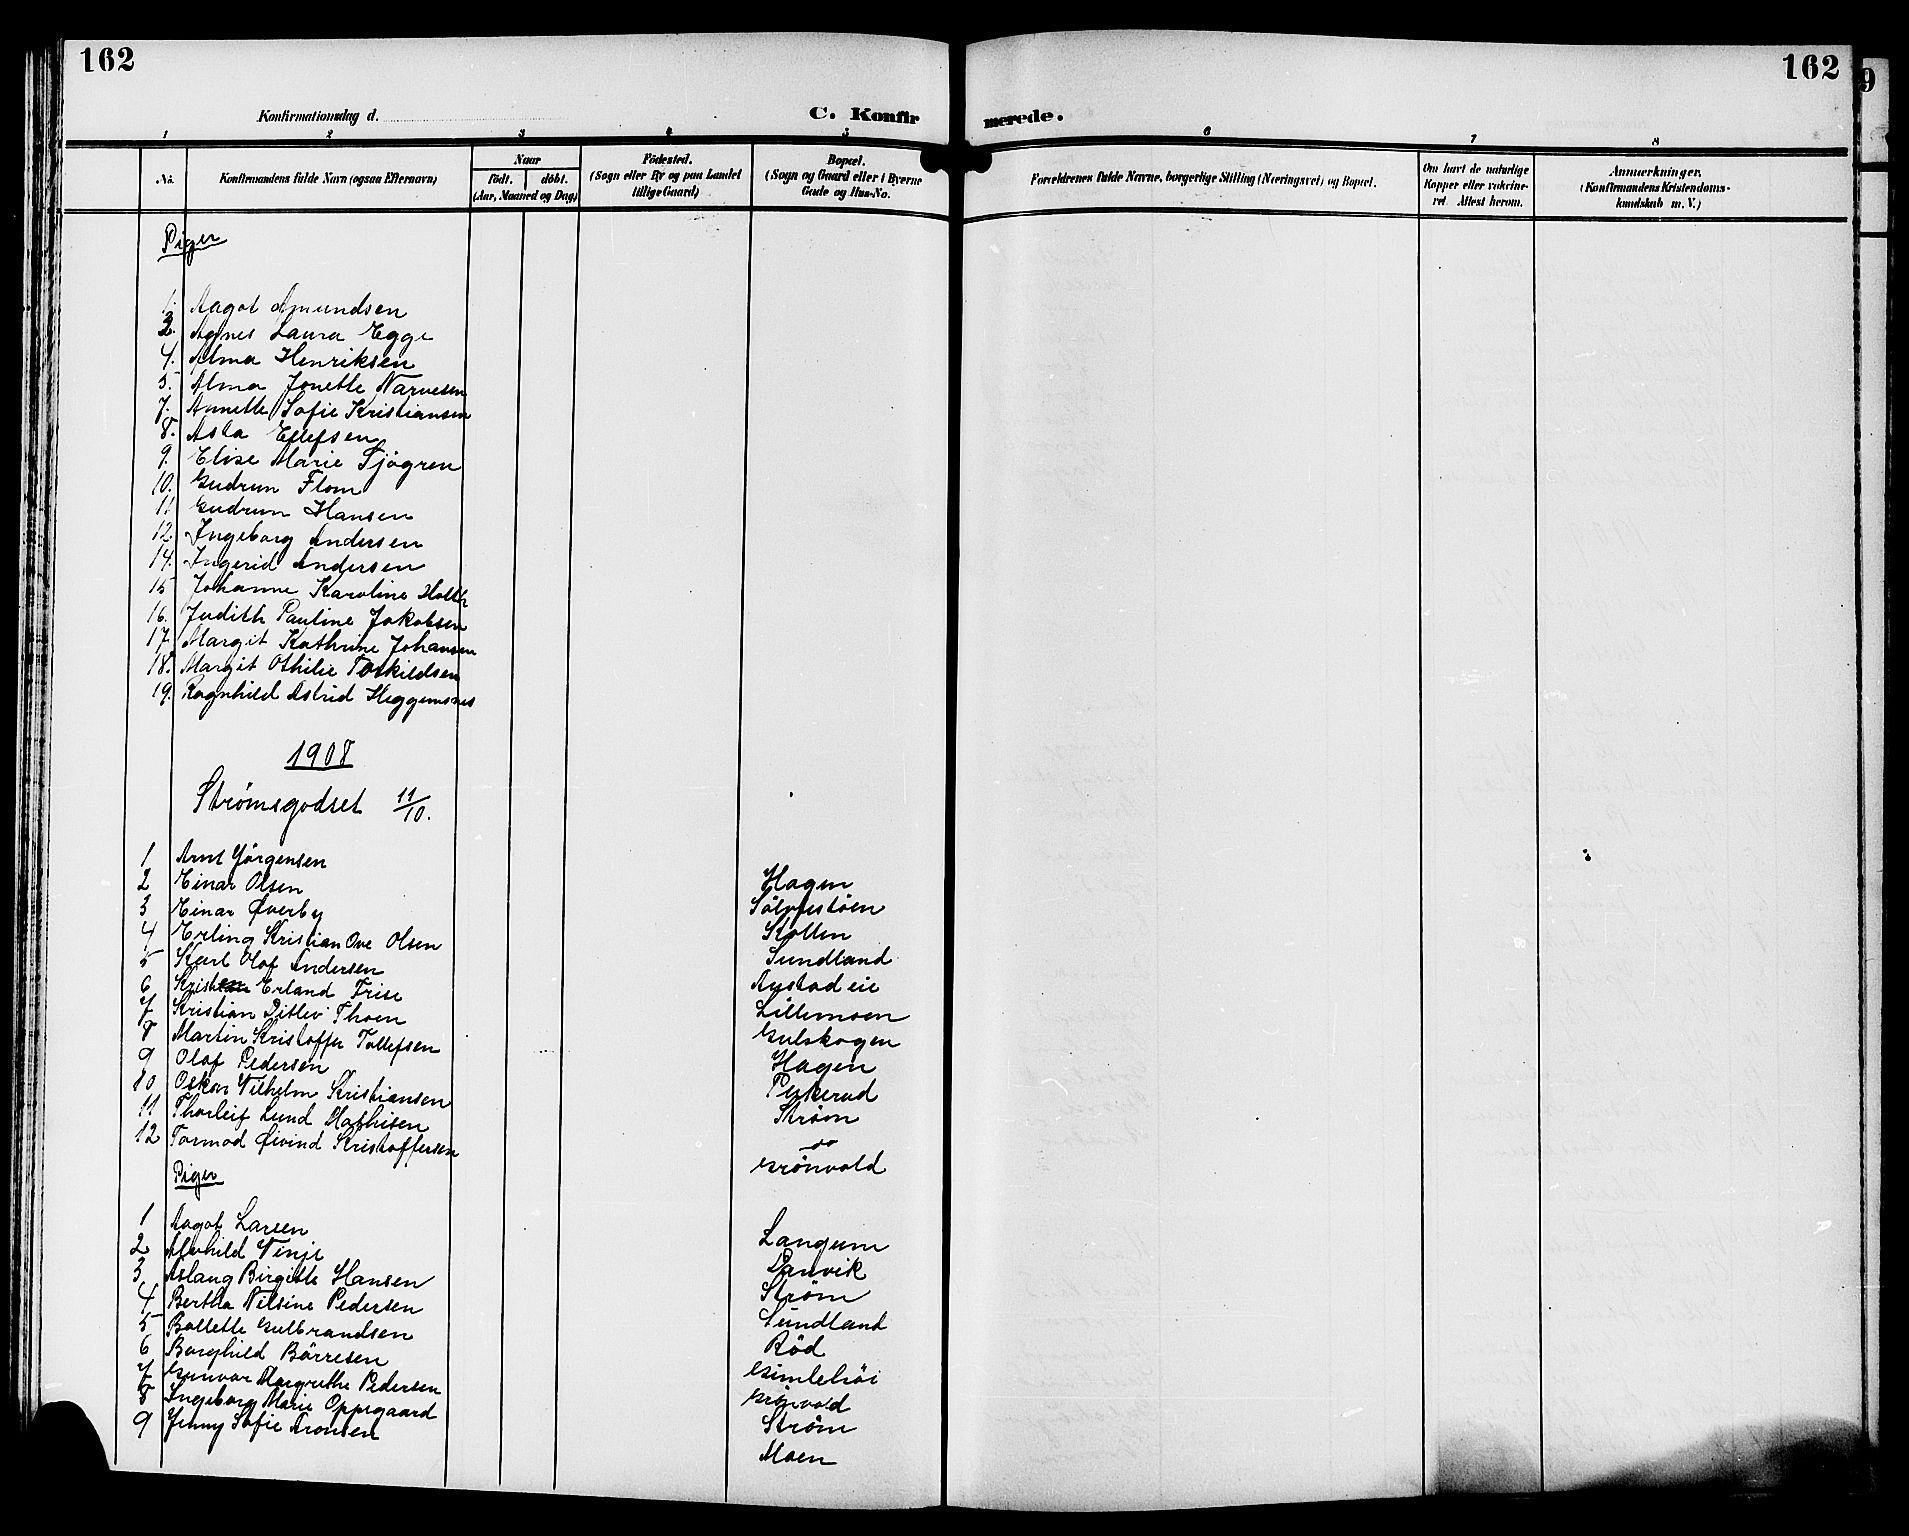 162
162
9
Konfirmationsdag d.
C. Konfirmerede.
1 2 3 4 5 6 7 8
No.
Konfirmandens fulde Navn (ogsaa Efternavn)
Naar
født. døbt.
(Aar, Maaned og Dag)
Fødested.
(Sogn eller By og paa Landet
tillige Gaard)
Bopæl.
(Sogn og Gaard eller i Byerne
Gade og Hus-No.
Forældrenes fulde Navne, borgerlige Stilling (Næringsvei) og Bopæl.
Om havt de naturlige
Kopper eller vakcine-
ret Attest herom.
Anmærkninger.
(Konfirmandens Kristendoms-
kundskab m. V.)
Piger
1. Aagot Amundsen
2. Agnes Laura Egge
4. Alma Henriksen
5. Alma Jonette Narvesen
7. Annette Sofie Kristiansen
8. Asta Ellefsen
9. Elise Marie Sjögren
10. Gudrun Flom
11. Gudrun Hansen
12 Ingeborg Andersen
14. Ingerid Andersen
15 Johanne Karoline Holth
16. Judith Pauline Jakobsen
17. Margit Kathrine Johansen
18. Margit Othilie Torkildsen
19. Ragnhild Astrid Heggemsnes
1908
Strømsgodset 11/10.
1 Arnt Jörgensen
2 Einar Olsen Hagen
3 Einar Øverby Sölvfastöen
4 Erling Kristian Ove Olsen Kollen
5 Karl Olaf Andersen Sundland
6 Kristen Erland Frise Austad eie
7 Kristian Ditlev Thoen Lillemoen
8 Martin Kristoffer Tollefsen Gulskogen
9 Olaf Pedersen Hagen
10 Oskar Vilhelm Kristiansen Peskerud
11 Thorleif Lund Mathisen Strøm
12 Tormod Øivind Kristoffersen do
Grönvold
Piger
1 Aagot Larsen Langum
2 Alvhild Vinje Danvik
3 Aslaug Birgitte Hansen Strøm
4 Bertha Nilsine Pedersen Sundland
5 Bollette Gulbrandsen Röd
6 Borghild Börresen Gimlehöi
7 Gunvor Margrethe Pedersen Grönvold
8 Ingeborg Marie Oppegaard Strøm
9 Jenny Sofie Aronsen Moen